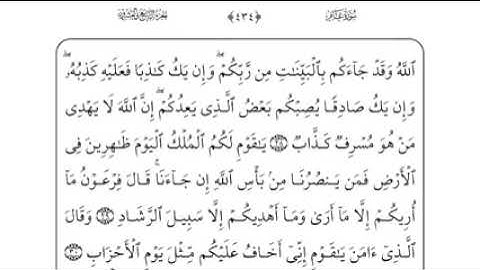 الجزء الرابع والعشرون ﴿٤٣٤﴾ سورة غافر
ٱللَّهُ وَقَدْ جَآءَكُم بِٱلْبَيِّنَٰتِ مِن رَّبِّكُمْ ۖ وَإِن يَكُ كَٰذِبًا فَعَلَيْهِ كَذِبُهُۥ ۖ
وَإِن يَكُ صَادِقًا يُصِبْكُم بَعْضُ ٱلَّذِى يَعِدُكُمْ ۖ إِنَّ ٱللَّهَ لَا يَهْدِى
مَنْ هُوَ مُسْرِفٌ كَذَّابٌ ٢٨ يَٰقَوْمِ لَكُمُ ٱلْمُلْكُ ٱلْيَوْمَ ظَٰهِرِينَ فِى
ٱلْأَرْضِ فَمَن يَنصُرُنَا مِنۢ بَأْسِ ٱللَّهِ إِن جَآءَنَا ۚ قَالَ فِرْعَوْنُ مَآ
أُرِيكُمْ إِلَّا مَآ أَرَىٰ وَمَآ أَهْدِيكُمْ إِلَّا سَبِيلَ ٱلرَّشَادِ ٢٩ وَقَالَ
ٱلَّذِىٓ ءَامَنَ يَٰقَوْمِ إِنِّىٓ أَخَافُ عَلَيْكُم مِّثْلَ يَوْمِ ٱلْأَحْزَابِ ٣٠